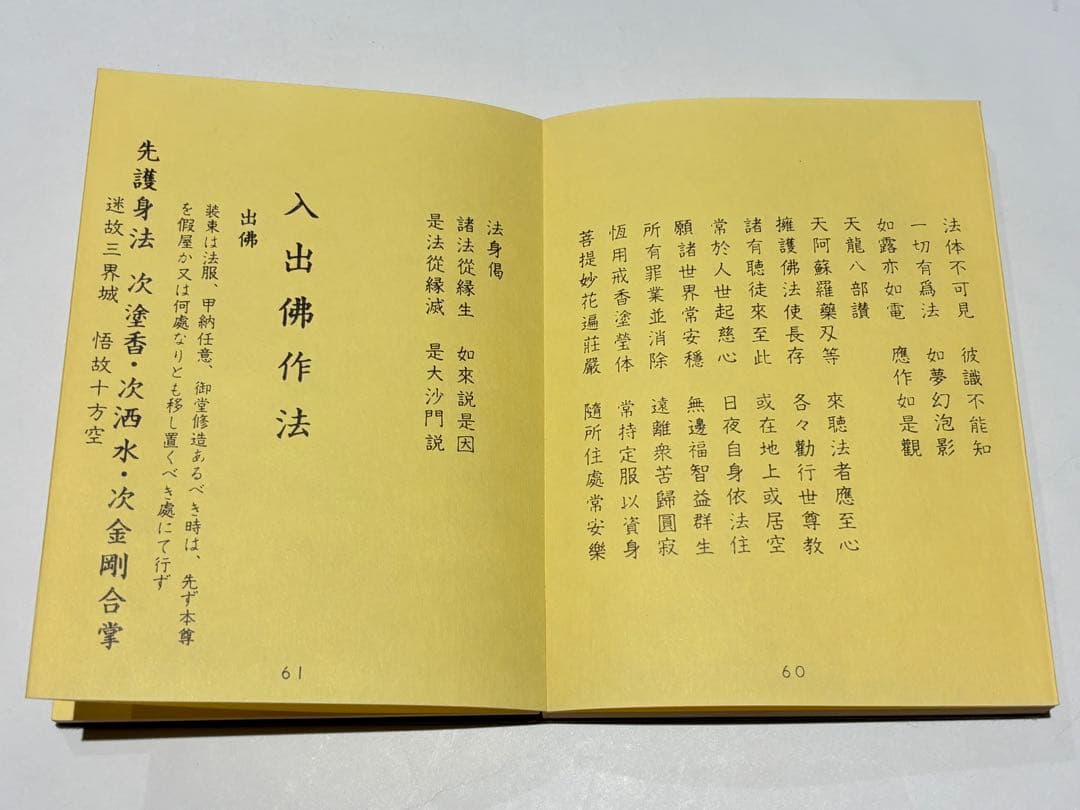 法体不可見　彼識不能知
一切有爲法　如夢幻泡影
如露亦如電　應作如是觀
天龍八部讃
天阿蘇羅藥叉等　來聽法者應至心
擁護佛法使長存　各々勸行世尊教
諸有聽徒來至此　或在地上或居空
常於人世起慈心　日夜自身依法住
願諸世界常安穩　無邊福智益群生
所有罪業並消除　遠離衆苦歸圓寂
恆用戒香塗瑩体　常持定服以資身
菩提妙花遍莊嚴　隨所住處常安樂
60
法身偈
諸法從緣生　如來説是因
是法從緣滅　是大沙門説
入出佛作法
出佛
装束は法服、甲納任意、御堂修造あるべき時は、先ず本尊
を假屋か又は何處なりとも移し置くべき處にて行ず
先護身法　次塗香・次洒水・次金剛合掌
迷故三界城　悟故十方空
61